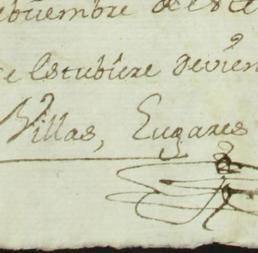 biembre de este
e Estubiere de vien
Villas, Lugares